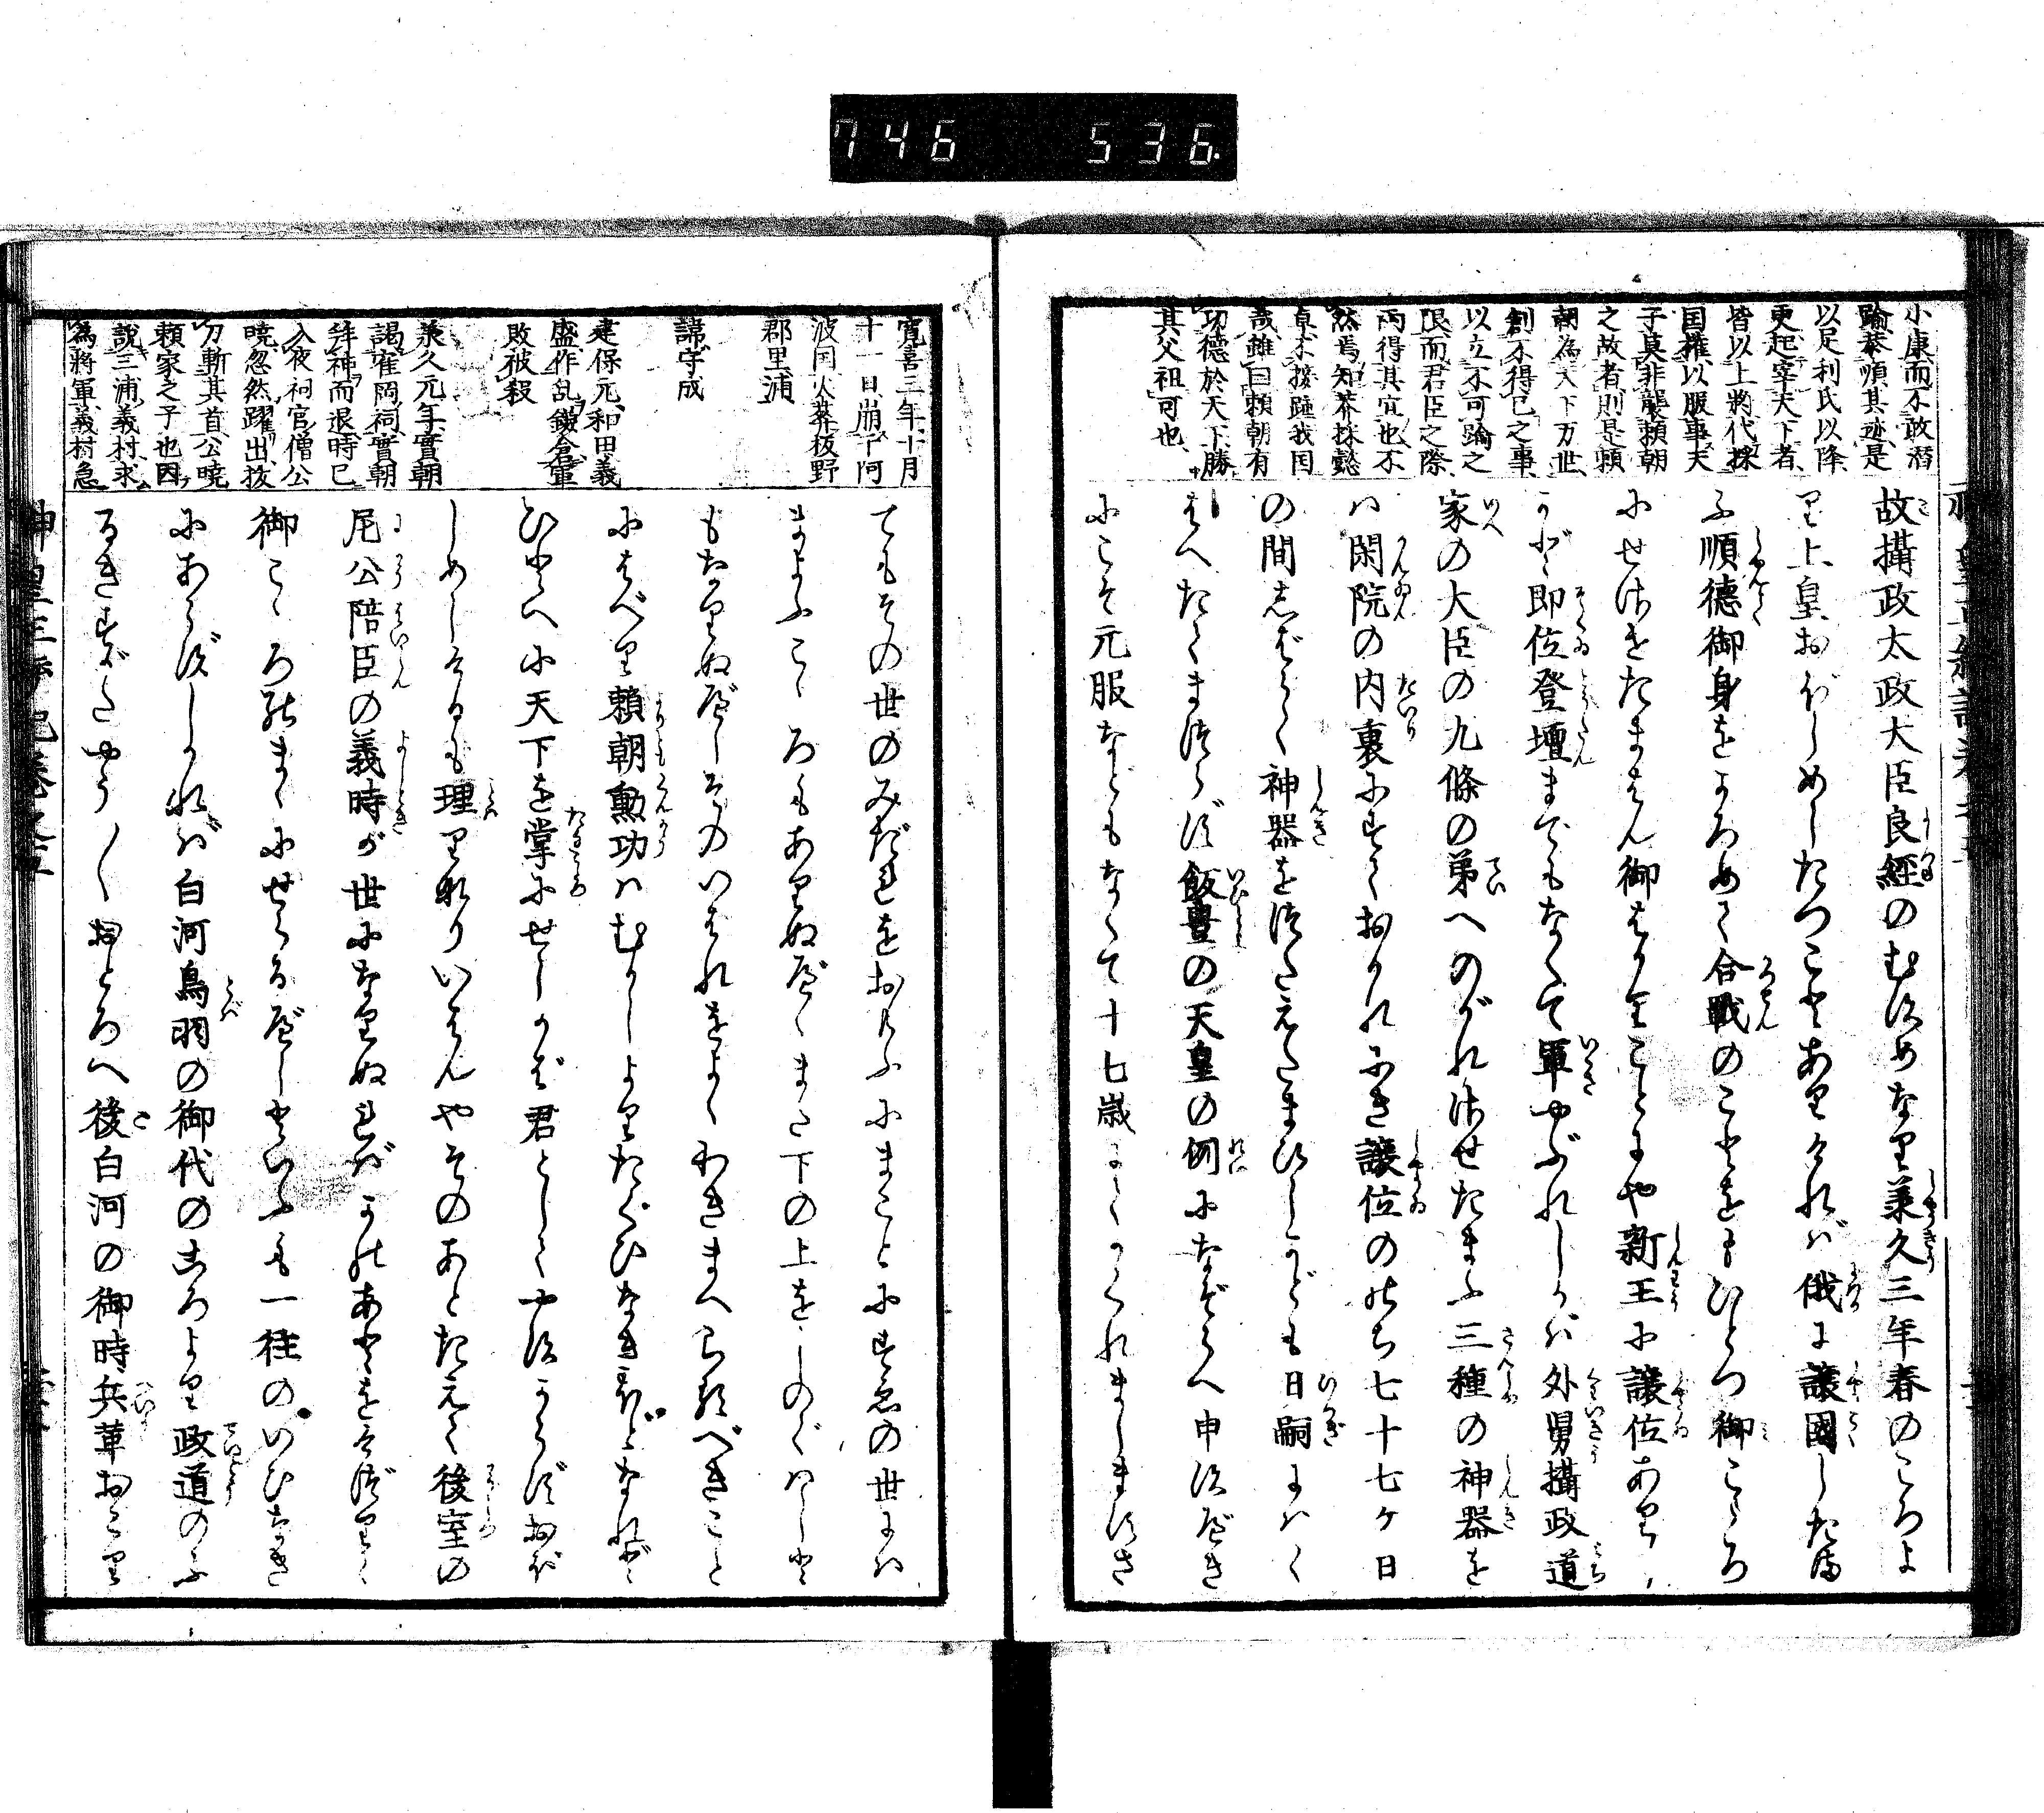 746 536.
小康而不敢潜
踰恭順其迹是
以足利氏以降
更起宰天下者
皆以上將代採
国權以服事天
子莫非襲頼朝
之故者則是頼
朝為天下万世
創不得已之事
以立不可踰之
限而君臣之際
両得其宜也不
然焉知莽操懿
卓不接踵我国
哉雖曰頼朝有
功德於天下勝
其父祖可也
故攝政太政大臣良經のむすめなり承久三年春のころよ
り上皇おぼしめしたつことありければ俄に讓國したま
ふ順德御身をかろめて合戰のことをもひとつ御こゝろ
にせさせたまはん御はかりことにや新王に讓位ありし
かど即位登壇までもなくて軍やぶれしかば外舅攝政道
家の大臣の九條の第へのがれさせたまふ三種の神器を
ば閑院の内裏にすておかれにき讓位のゝち七十七ケ日
の間しばらく神器をつたえたまひしかども日嗣にはく
はへたてまつらず飯豊の天皇の例になぞらへ申すべき
にこそ元服などもなくて十七歳にてかくれましますさ
寛喜三年十月
十一日崩于阿
波国火葬板野
郡里浦
諱守成
建保元和田義
盛作乱鎌倉軍
敗被殺
承久元年實朝
謁寉岡祠實朝
拜神而退時已
入夜祠官僧公
曉忽然躍出抜
刀斬其首公曉
頼家之子也因
說三浦義村求
為將軍義村急
てもその世のみだれをおもふにまことにすゑの世には
まよふこゝろもありぬべくまた下の上をしのぐはしと
もなりぬべしそのいはれをよくわきまへらるべきこと
にはべり頼朝勲功はむかしよりたぐひなきほどなれど
ひとへに天下を掌にせしかば君としてやすからずおぼ
しめしけるも理りなりいはんやそのあとたえて後室の
尼公陪臣の義時が世になりぬればかのあとをけづりて
御こゝろのまゝにせらるべしといふも一往のいひなき
にあらずしかれば白河鳥羽の御代のころより政道のふ
るきすがたやう〱おとろへ後白河の御時兵革おこり